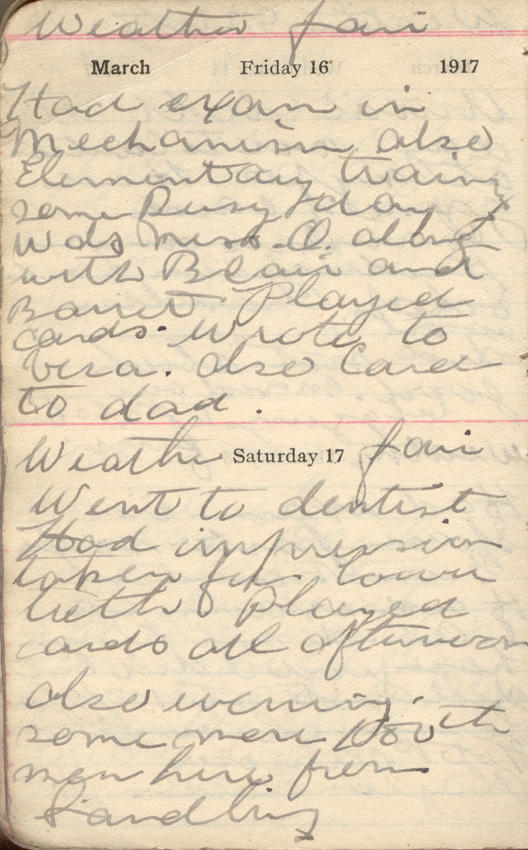 Weather fair
March Friday 16 1917
Had exam in
Mechanism also
Elementary traing
some Busy day
was mess O. along
with Blair and
Barret Played
cards. wrote to
Vera. also Card
to dad.
Weather Saturday 17 fair
Went to dentist
Had impression
taken for lower
teeth Played
cards all afternoon
also evening.
some more 180th
men here from
Sandling